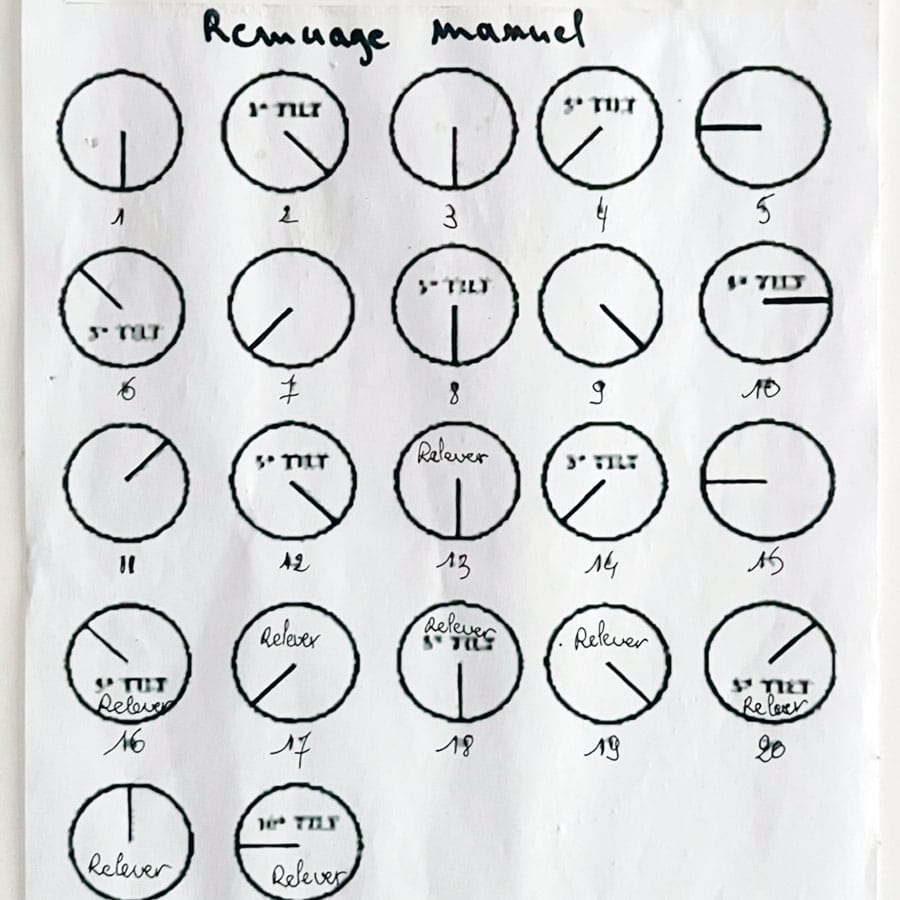 Remuage manuel
TILT
5° TILT
1 2 3 4 5
5° TILT
5° TILT
TILT
6 7 8 9 10
5° TILT
Relever
5° TILT
11 12 13 14 15
Relever
Relever
5° TILT
Relever
5° TILT
Relever
5° TILT
Relever
16 17 18 19 20
10° TILT
Relever
Relever